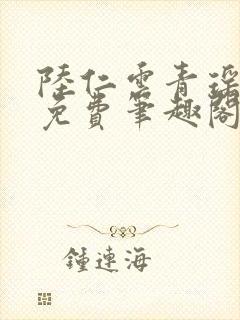 陸仁雲青瑤
免費筆趣閣
鍾連海